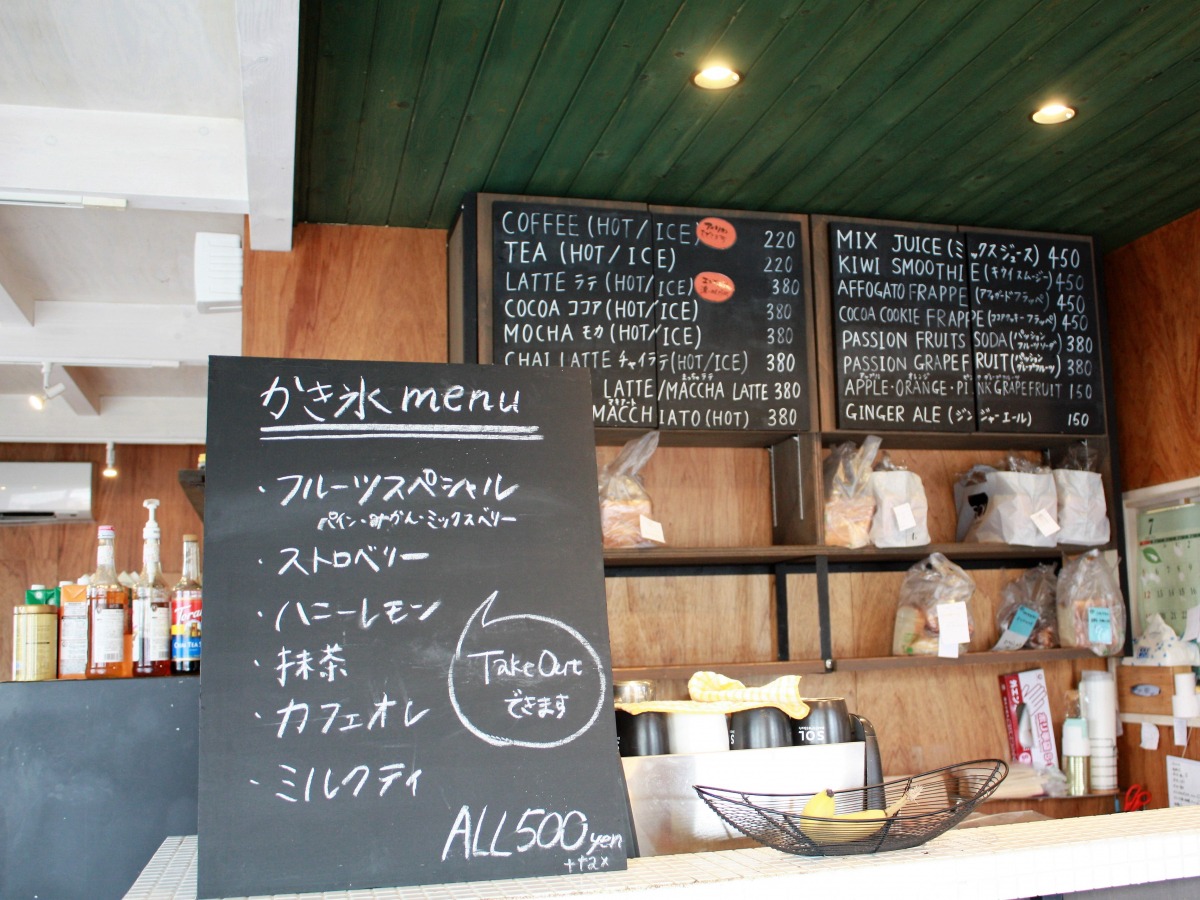 かき氷 menu
・フルーツスペシャル
パイン・みかん・ミックスベリー
・ストロベリー
・ハニーレモン
・抹茶
・カフェオレ
・ミルクティ
Take Out
できます
ALL 500 yen
COFFEE (HOT/ICE) 220
TEA (HOT/ICE) 220
LATTE ラテ (HOT/ICE) 380
COCOA ココア (HOT/ICE) 380
MOCHA モカ (HOT/ICE) 380
CHAI LATTE チャイラテ (HOT/ICE) 380
LATTE/MACCHA LATTE 380
MACCHIATO (HOT) 380
MIX JUICE (ミックスジュース) 450
KIWI SMOOTHIE (キウイスムージー) 450
AFFOGATO FRAPPE (アフォガードフラッペ) 450
COCOA COOKIE FRAPPE (ココアクッキーフラッペ) 450
PASSION FRUITS SODA (パッションフルーツソーダ) 380
PASSION GRAPEFRUIT (パッショングレープフルーツ) 380
APPLE・ORANGE・PINK GRAPEFRUIT 150
GINGER ALE (ジンジャーエール) 150
SOL
7